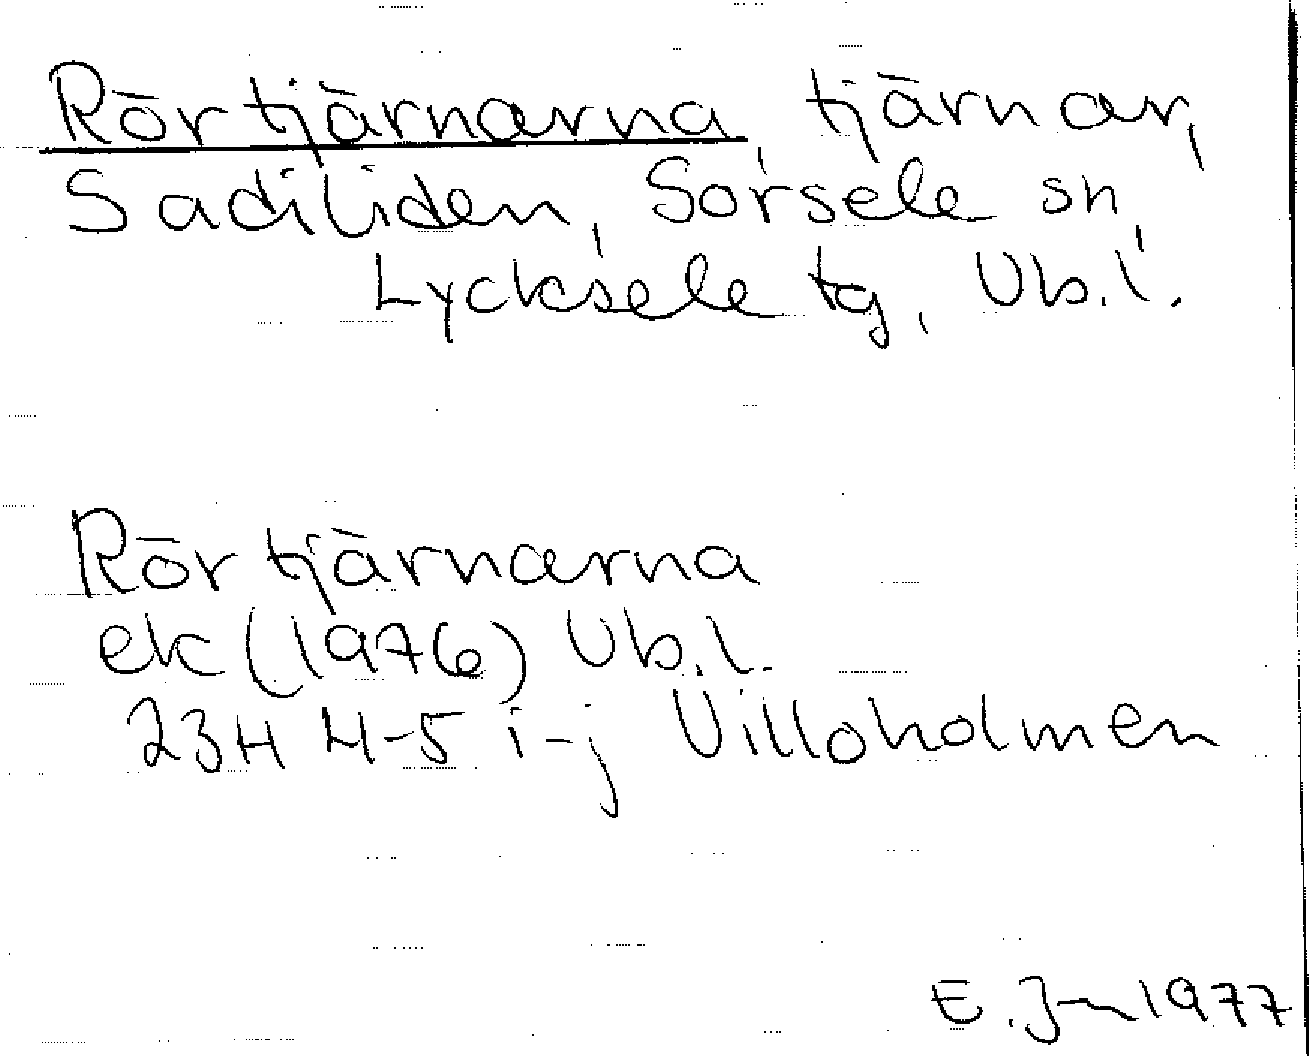 Rörtjärnarna, tjärnar,
Sadiliden, Sorsele sn,
Lycksele tg, Vb.l.
Rörtjärnarna
ek (1976) Vb.l.
23H 4-5 i-j Villoholmen
E. J 1977